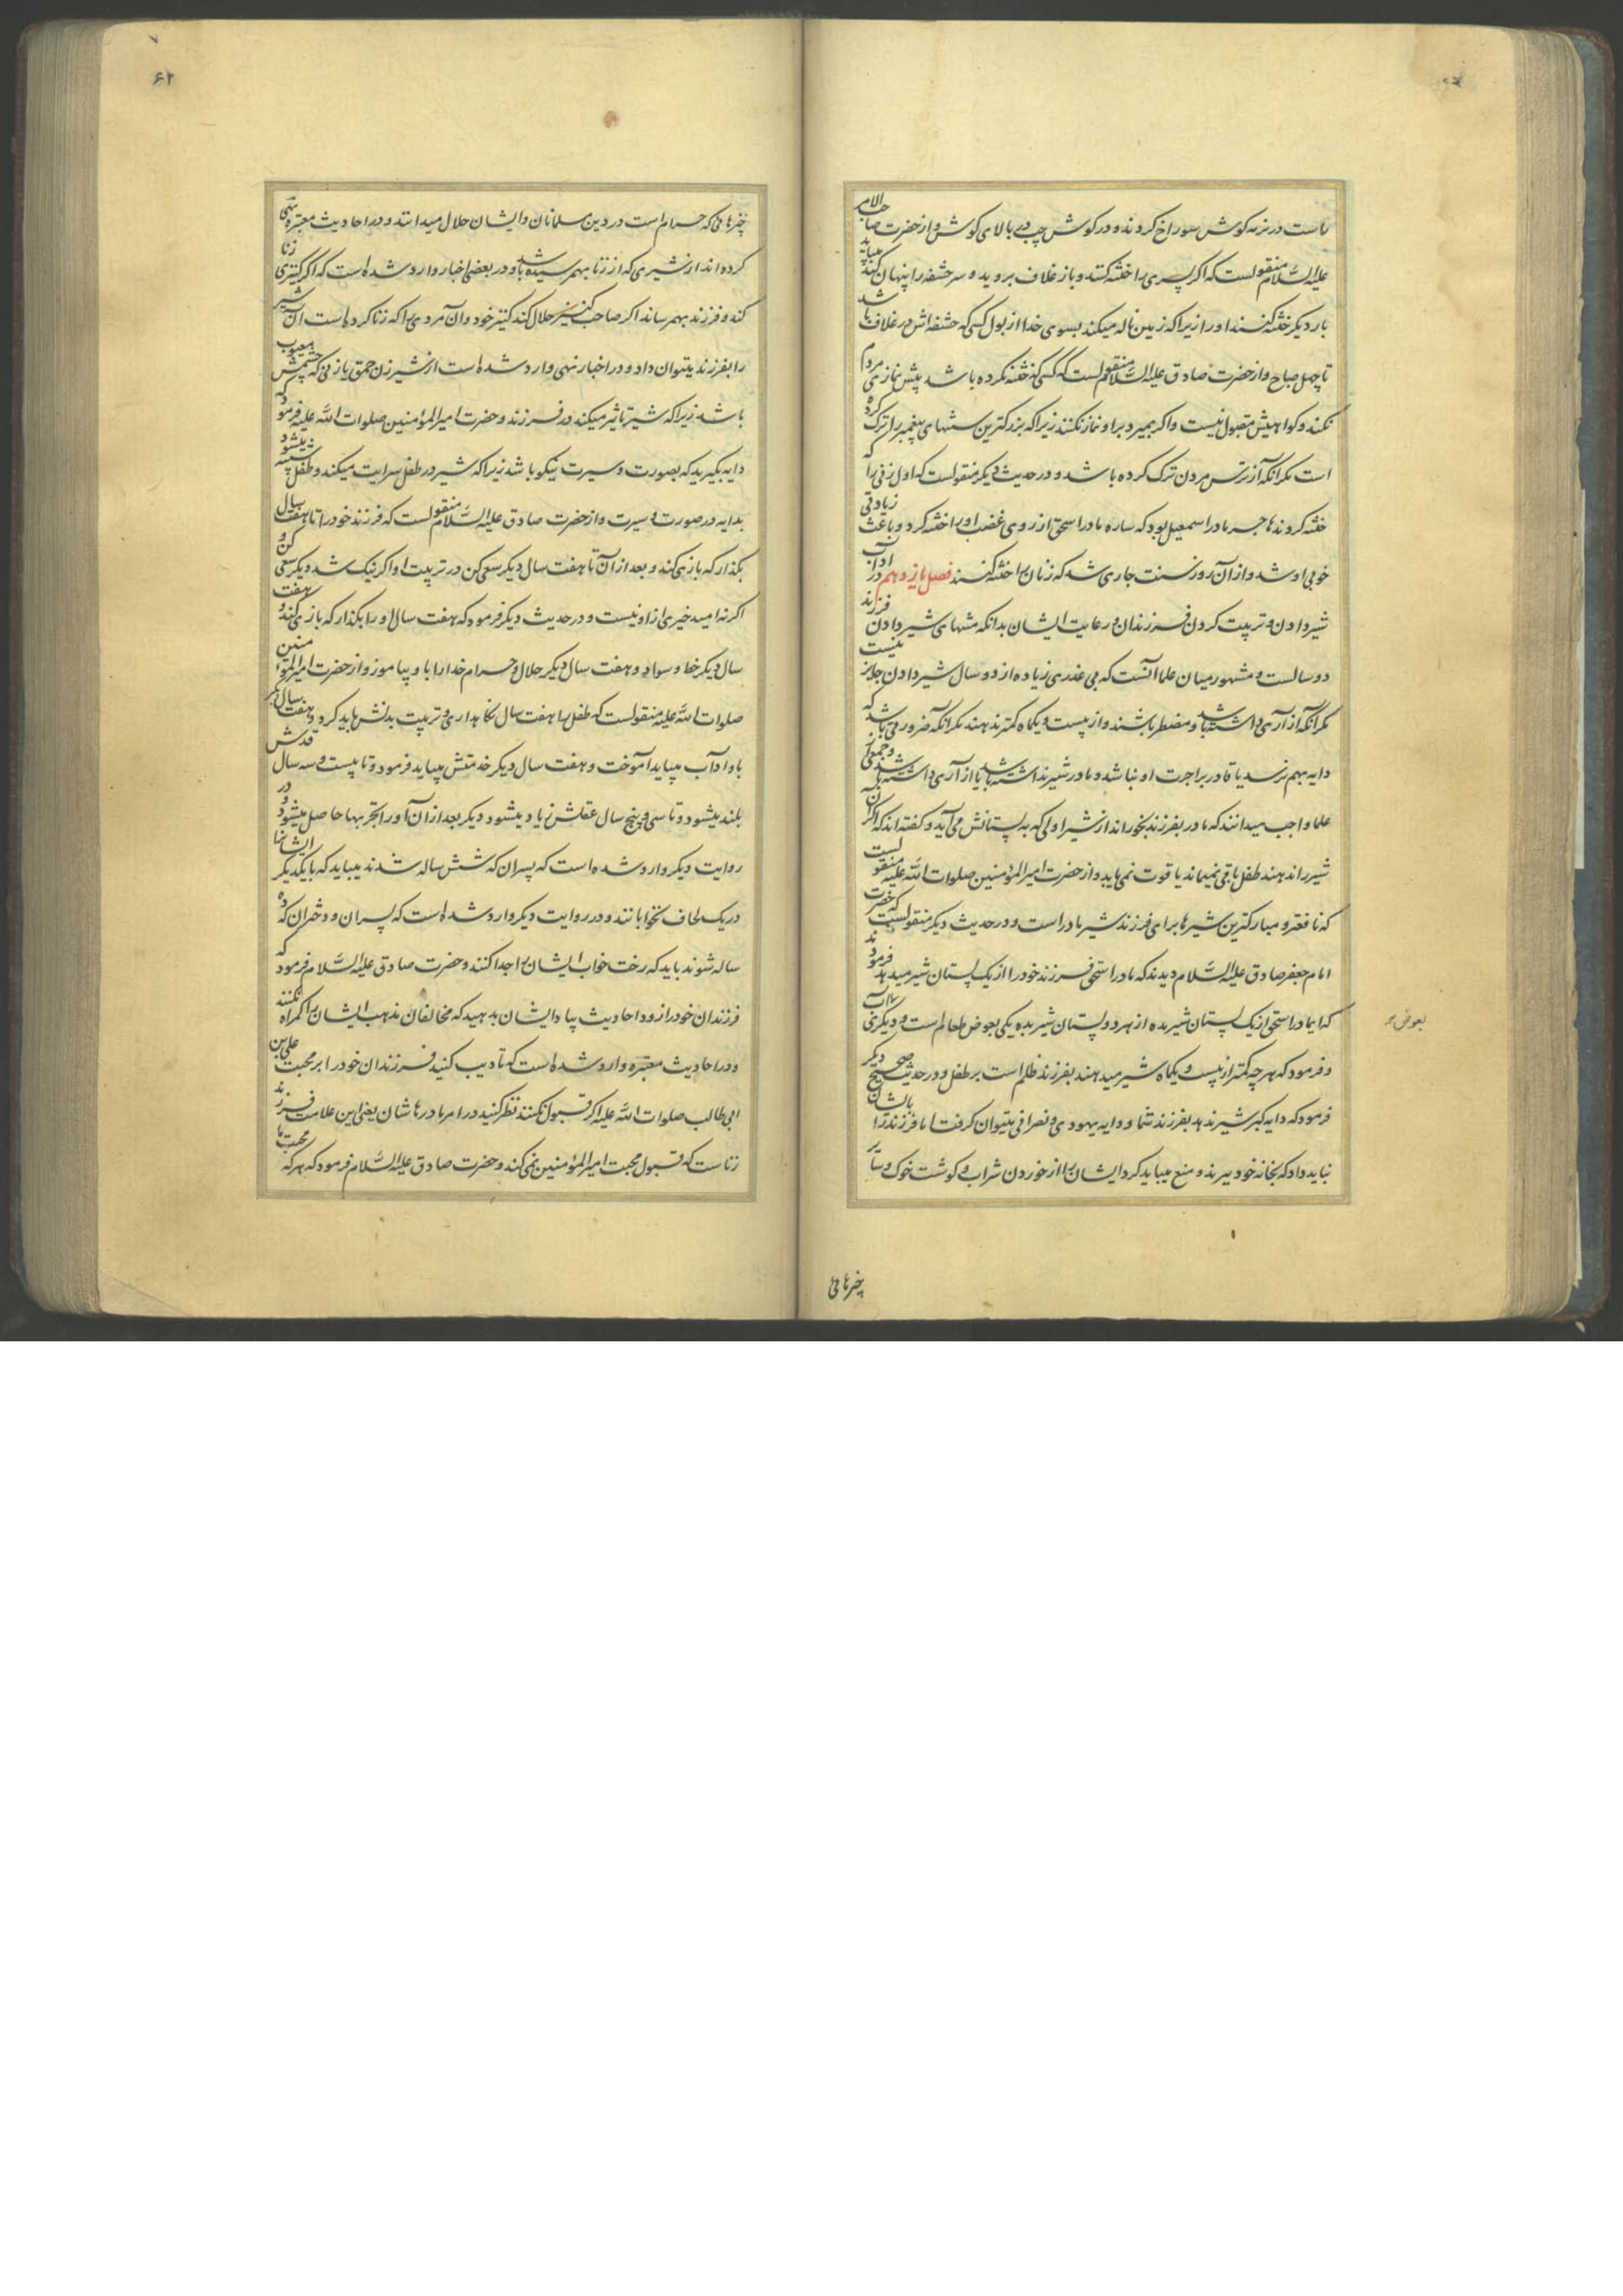 راست در نرمه کوش سوراخ کردند و در کوش چپ در بالای کوش و از حضرت صاحب الامر
علیه السلام منقولست که اکر پسری را ختنه کنند و باز غلاف بروید و سر حشفه را پنهان کند میباید
بار دیکر ختنه کنند او را زیرا که زمین ناله میکند بسوی خدا از بول کسی که حشفه اش در غلاف باشد
تا چهل صباح و از حضرت صادق علیه السلام منقولست که کسی که ختنه نکرده باشد پیش نمازی مردم
نکند و کواهیش مقبول نیست و اکر بمیرد بر او نماز نکنند زیرا که بزرکترین سنتهای پیغمبر را ترک کرده
است مکر آنکه از ترس مردن ترک کرده باشد و در حدیث دیکر منقولست که اول زنی را که
ختنه کردند هاجر مادر اسمعیل بود که ساره مادر اسحق از روی غضب او را ختنه کرد و باعث زیادتی
خوبی او شد و از آن روز سنت جاری شد که زنان را ختنه کنند فصل یازدهم در آداب
شیر دادن و تربیت کردن فرزندان و رعایت ایشان بدانکه منتهای شیر دادن فرزند
دو سالست و مشهور میان علما آنست که بی عذری زیاده از دو سال شیر دادن جایز نیست
مکر آنکه آزاری داشته باشد و مضطر باشند و از بیست و یکماه کمتر ندهند مکر آنکه ضرورتی باشد که
دایه بهم نرسد یا قادر بر اجرت او نباشد و مادر شیر نداشته باشد یا آزاری داشته باشد و جمعی از
علما واجب میدانند که مادر بفرزند بخوراند از شیر اولی که به پستانش می آید و کفته اند که اکر آن
شیر را ندهند طفل باقی نمیماند یا قوت نمی یابد و از حضرت امیر المؤمنین صلوات الله علیه منقولست
که نافعتر و مبارکترین شیرها برای فرزند شیر مادر است و در حدیث دیکر منقولست که حضرت
امام جعفر صادق علیه السلام دیدند که مادر اسحق فرزند خود را از یک پستان شیر میدهد فرمودند
که ای مادر اسحق از یک پستان شیر مده از هر دو پستان شیر بده یکی بعوض طعام است و دیکری بعوض آب
بعوض
و فرمود که هر چه کمتر از بیست و یکماه شیر میدهند بفرزند ظلم است بر طفل و در حدیث صحیح دیکر
فرمود که دایه کبر شیر ندهد بفرزند شما و دایه یهودی و نصرانی میتوان کرفت اما فرزند را بایشان
نباید داد که بخانه خود ببرند و منع میباید کرد ایشان را از خوردن شراب و کوشت خوک و سایر
چیزهائی
۶۲
چیزهائی که حرام است در دین مسلمانان و ایشان حلال میدانند و در احادیث معتبره نهی
کرده اند از شیری که از زنا بهم رسیده باشد و در بعضی اخبار وارد شده است که اکر کنیزی زنا
کند و فرزند بهم رساند اکر صاحب کنیز حلال کند کنیز خود و آن مردی را که زنا کرده است آن شیر
را بفرزند میتوان داد و در اخبار نهی وارد شده است از شیر زن احمق یا زنی که چشمش معیوب
باشد زیرا که شیر تاثیر میکند در فرزند و حضرت امیر المؤمنین صلوات الله علیه فرمود که
دایه بگیرید که بصورت و سیرت نیکو باشد زیرا که شیر در طفل سرایت میکند و طفل شبیه میشود
بدایه در صورت و سیرت و از حضرت صادق علیه السلام منقولست که فرزند خود را تا هفت سال
بکذار که بازی کند و بعد از آن تا هفت سال دیکر سعی کن در تربیت او اکر نیک شد دیکر سعی کن و
اکر نه امید خیری از او نیست و در حدیث دیکر فرمود که هفت سال او را بکذار که بازی کند و هفت
سال دیکر خط و سواد و هفت سال دیکر حلال و حرام خدا را باو بیاموز و از حضرت امیر المؤمنین
صلوات الله علیه منقولست که طفل را هفت سال نکاهداری و تربیت بدنش باید کرد و هفت سال دیکر
باو آداب میباید آموخت و هفت سال دیکر خدمتش میباید فرمود و تا بیست و سه سال قدش
بلند میشود و تا سی و پنج سال عقلش زیاد میشود دیکر بعد از آن او را تجربها حاصل میشود و در
روایت دیکر وارد شده است که پسران که شش ساله شدند میباید که با یکدیکر ایشانرا
در یک لحاف نخوابانند و در روایت دیکر وارد شده است که پسران و دختران که ده
ساله شوند باید که رخت خواب ایشان را جدا کنند و حضرت صادق علیه السلام فرمود که
فرزندان خود را زود احادیث بیاد ایشان بدهید که مخالفان مذهب ایشان را کمراه نکنند
و در احادیث معتبره وارد شده است که تادیب کنید فرزندان خود را بر محبت علی بن
ابی طالب صلوات الله علیه اکر قبول نکنند نظر کنید در امر مادرهاشان یعنی این علامت فرزند
زناست که قبول محبت امیر المؤمنین نمی کند و حضرت صادق علیه السلام فرمود که هر که محبت ما